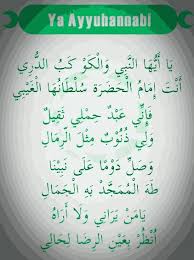 Ya Ayyuhannabi
يَا أَيُّهَا النَّبِي وَالْكَوْ كَبُ الدُّرِّي
أَنْتَ إِمَامُ الْحَضْرَةِ سُلْطَانُهَا الْغَيْبِي
فَإِنِّي عَبْدٌ حِمْلِي ثَقِيلٌ
وَلِي ذُنُوبٌ مِثْلَ الرِّمَالِ
وَصَلِّ دَوْمًا عَلَى نَبِيِّنَا
طَهَ الْمُمَجَّدْ بِهِ الْجَمَالِ
يَامَنْ يَرَانِي وَلَا أَرَاهُ
اُنْظُرْ بِعَيْنِ الرِّضَا لِحَالِي